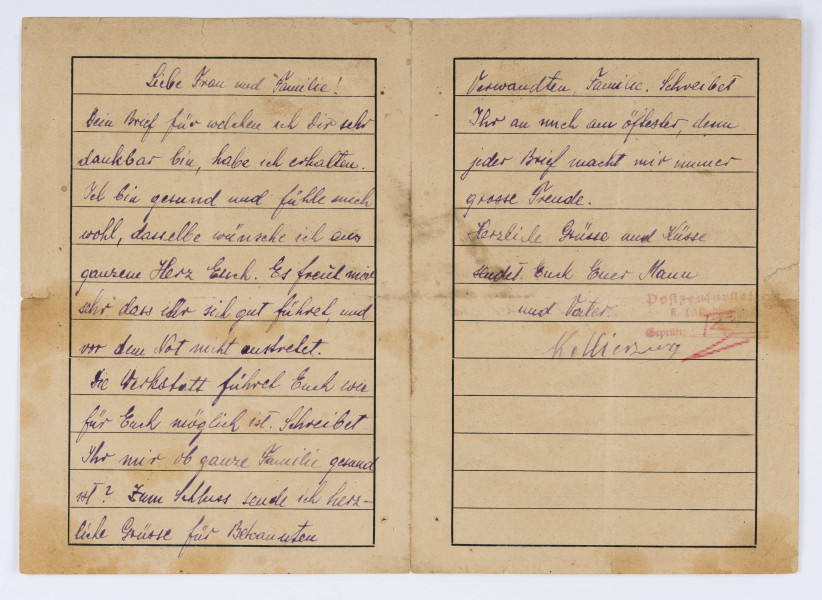 Liebe Frau und Familie!
Dein Brief für welchen ich Dir sehr
dankbar bin, habe ich erhalten.
Ich bin gesund und fühle mich
wohl, dasselbe wünsche ich aus
ganzem Herz Euch. Es freut mich
sehr dass ihr sich gut führet, und
vor dem Not nicht austretet.
Die Werkstatt führet Euch wie
für Euch möglich ist. Schreibet
Ihr mir ob ganze Familie gesund
ist? Zum Schluss sende ich herz-
liche Grüsse für Bekannten
Verwandten, Familie. Schreibet
Ihr an mich am öftester, denn
jeder Brief macht mir immer
grosse Freude.
Herzliche Grüsse und Küsse
sendet Euch Euer Mann
und Vater.
Postzensurstelle
Geprüft: